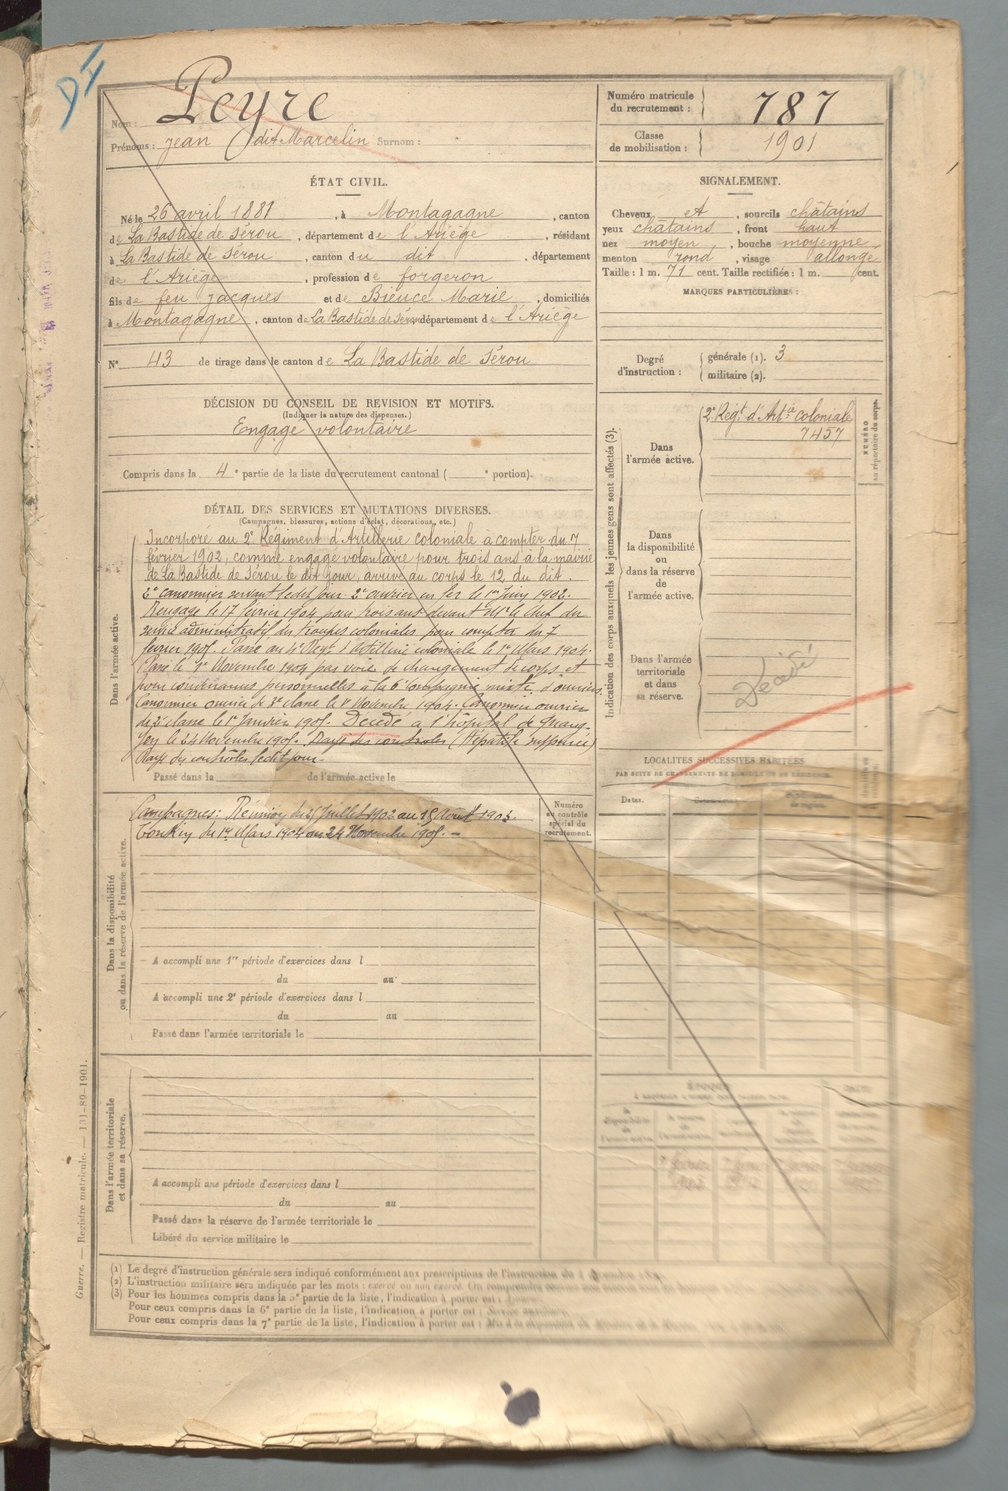 Nom : Peyre
Prénoms : Jean (dit Marcelin Surnom :
Numéro matricule
du recrutement : 787
Classe
de mobilisation : 1901
ÉTAT CIVIL.
Né le 26 avril 1881, à Montagagne, canton
de La Bastide de Sérou, département de l'Ariége, résidant
à La Bastide de Sérou, canton du dit, département
de l'Ariége, profession de forgeron
fils de feu Jacques et de Bieuce Marie, domiciliés
à Montagagne, canton de La Bastide de Sérou département de l'Ariége
N° 43 de tirage dans le canton de La Bastide de Sérou
SIGNALEMENT.
Cheveux et, sourcils châtains
yeux châtains, front haut
nez moyen, bouche moyenne
menton rond, visage allongé
Taille : 1 m. 71 cent. Taille rectifiée : 1 m. cent.
MARQUES PARTICULIÈRES :
Degré
d'instruction :
générale (1). 3
militaire (2).
DÉCISION DU CONSEIL DE REVISION ET MOTIFS.
(Indiquer la nature des dispenses.)
Engagé volontaire
Compris dans la 4e partie de la liste du recrutement cantonal ( e portion).
DÉTAIL DES SERVICES ET MUTATIONS DIVERSES.
(Campagnes, blessures, actions d'éclat, décorations, etc.)
Dans l'armée active.
Incorporé au 2e Régiment d'Artillerie coloniale à compter du 7
février 1902, comme engagé volontaire pour trois ans à la mairie
de La Bastide de Sérou le dit jour, arrivé au corps le 12 du dit.
2e canonnier servant ledit jour. 2e ouvrier en fer le 1er Juin 1902.
Rengagé le 17 février 1904 pour trois ans devant Mr le Chef du
service administratif des troupes coloniales pour compter du 7
février 1905. Passé au 4e Régt d'Artillerie coloniale le 1er Mars 1904.
Passé le 1er Novembre 1904 par voie de changement de corps et
pour convenances personnelles à la 6e Compagnie mixte d'ouvriers.
Canonnier ouvrier de 3e classe le 1er Novembre 1904. Canonnier ouvrier
de 2e classe le 1er Janvier 1905. Décédé à l'hôpital de Quang
Yen le 24 Novembre 1905. Rayé des contrôles (Hépatite suppurée)
Rayé des contrôles ledit jour.
Passé dans la de l'armée active le
Indication des corps auxquels les jeunes gens sont affectés (3).
Dans
l'armée active.
2e Régt d'Artie coloniale
7457
NUMÉRO
au répertoire du corps.
Dans
la disponibilité
ou
dans la réserve
de
l'armée active.
Dans l'armée
territoriale
et dans
sa réserve.
Décédé
Dans la disponibilité
ou dans la réserve de l'armée active.
Campagnes : Réunion du 25 Juillet 1902 au 15 Août 1903.
Tonkin du 1er Mars 1904 au 24 Novembre 1905. —
Numéro
au contrôle
spécial du
recrutement.
A accompli une 1re période d'exercices dans l
du au
A accompli une 2e période d'exercices dans l
du au
Passé dans l'armée territoriale le
LOCALITÉS SUCCESSIVES HABITÉES
PAR SUITE DE CHANGEMENTS DE DOMICILE OU DE RÉSIDENCE.
Dates.
Dans l'armée territoriale
et dans sa réserve.
A accompli une période d'exercices dans l
du au
Passé dans la réserve de l'armée territoriale le
Libéré du service militaire le
(1) Le degré d'instruction générale sera indiqué conformément aux prescriptions de l'instruction du
(2) L'instruction militaire sera indiquée par les mots : exercé ou non exercé. On comprendra
(3) Pour les hommes compris dans la 5e partie de la liste, l'indication à porter est :
Pour ceux compris dans la 6e partie de la liste, l'indication à porter est : Service auxiliaire.
Pour ceux compris dans la 7e partie de la liste, l'indication à porter est :
Guerre. — Registre matricule. — 131-89-1901.